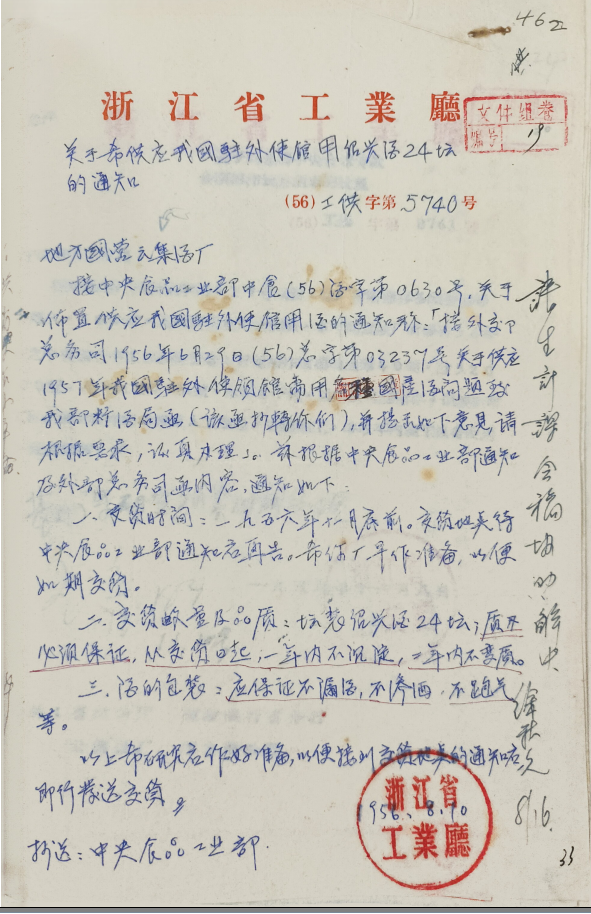 4622
浙江省工業廳
文件组卷
编号 19
关于希供应我國駐外使馆用绍兴酒24坛
的通知
(56)工供字第5740号
地方國营云集酒厂
接中央食品工业部中食(56)酒字第0630号，关于
佈置供应我國駐外使馆用酒的通知称：「接外交部
总务司1956年6月29日(56)总字第03237号关于供应
1957年我國驻外使领馆需用各種國產酒问题致
我部料酒局函(该函抄轉你们)，并提示如下意见，请
根据要求，认真办理」。兹根据中央食品工业部通知
及外部总务司函内容，通知如下：
一、交货时间：一九五六年十一月底前。交货地点待
中央食品工业部通知后再告。希你厂早作准备，以便
如期交货。
二、交货数量及品质：坛装绍兴酒24坛；质量
必须保证，从交货日起，一年内不沉淀，二年内不变质。
三、酒的包装：应保证不漏酒，不渗洒，不跑气
等。
以上希研究后作好准备，以便接到交货地点的通知后
即行发送交货。
浙江省
1956.8.10
工業廳
抄送：中央食品工业部.
生计課会
8/16.
33